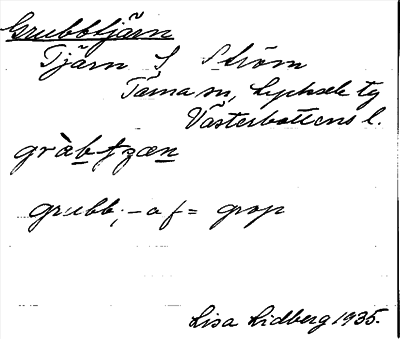 Grubbtjärn
Tjärn S Ström
Tärna sn, Lycksele tg
Västerbottens l.
gràb-tzæn
grubb, -a f = grop
Lisa Lidberg 1935.